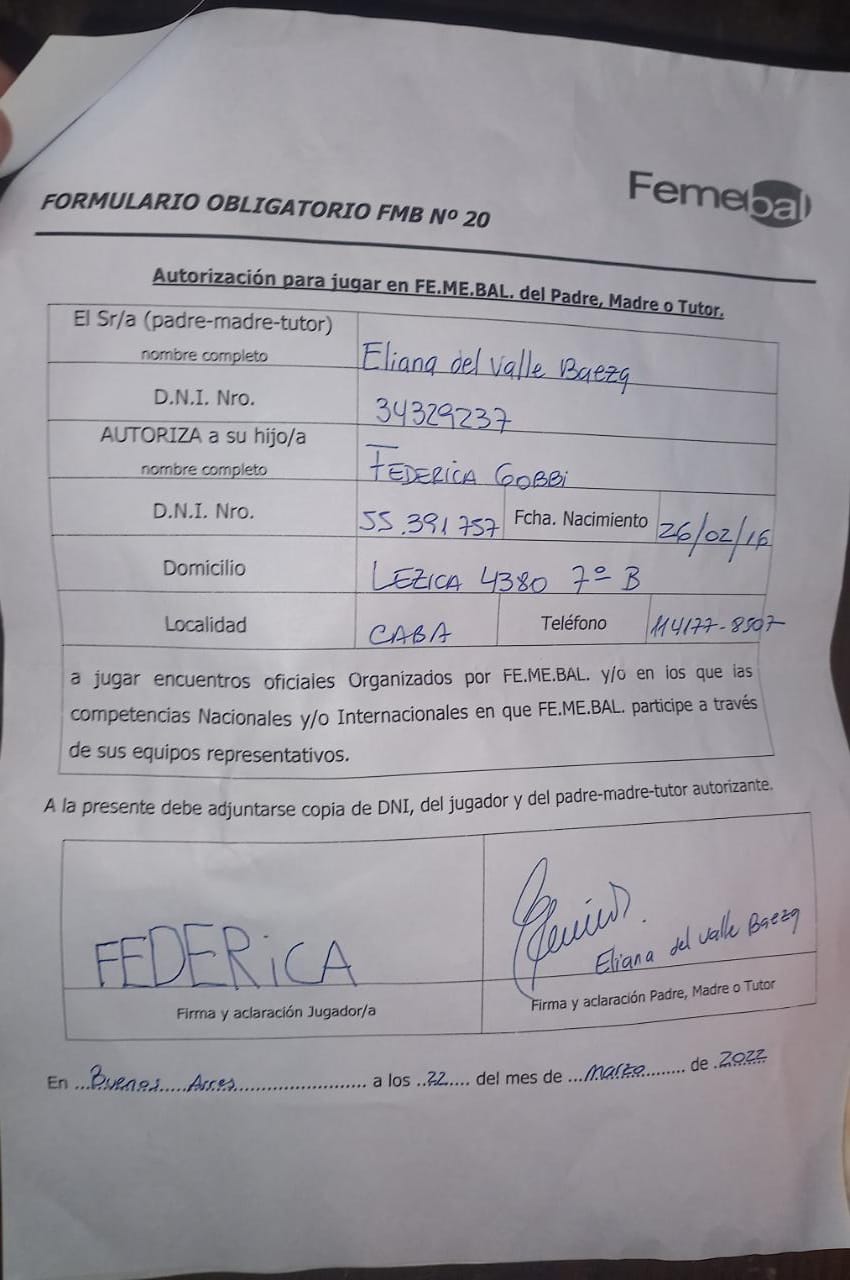 Femebal
FORMULARIO OBLIGATORIO FMB Nº 20
Autorización para jugar en FE.ME.BAL. del Padre, Madre o Tutor.
El Sr/a (padre-madre-tutor)
nombre completo
Eliana del Valle Baeza
D.N.I. Nro.
34329237
AUTORIZA a su hijo/a
nombre completo
FEDERICA GOBBi
D.N.I. Nro.
55.391757
Fcha. Nacimiento
26/02/16
Domicilio
LEZICA 4380 7º B
Localidad
CABA
Teléfono
114177-8507
a jugar encuentros oficiales Organizados por FE.ME.BAL. y/o en los que las
competencias Nacionales y/o Internacionales en que FE.ME.BAL. participe a través
de sus equipos representativos.
A la presente debe adjuntarse copia de DNI, del jugador y del padre-madre-tutor autorizante.
FEDERiCA
Eliana del Valle Baeza
Firma y aclaración Jugador/a
Firma y aclaración Padre, Madre o Tutor
En ...Buenos.....Aires......................... a los ..22..... del mes de ...marzo......... de .2022